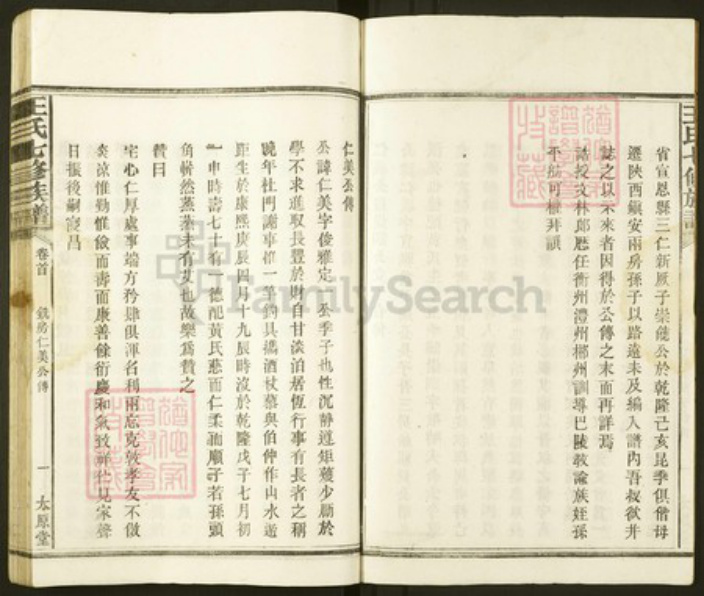 王氏七修族譜
省宣恩縣三仁新厰子崇 公於乾隆己亥昆季俱偕母
遷陝西鎮安兩房孫子以路遠未及編入譜內吾叔欲幷
誌之以示來者因得於公傳之末而再詳焉
誥授文林郎歷任衡州澧州郴州訓導巴陵教諭族姪孫
平舫可權拜譔
仁美公傳
公諱仁美字俊雅定 公季子也性沉靜遵矩矱少厲於
學不求進取長豐於財自甘淡泊居恆行事有長者之稱
晚年杜門謝事惟一筆釣具攜酒杖慕與伯仲作山水遊
距生於康熙庚辰四月十九辰時沒於乾隆戊子七月初
一申時壽七十有一德配黃氏慈而仁柔而順子若孫頭
角嶄然蒸蒸未有艾也故樂爲贊之
贊曰
宅心仁厚處事端方矜肆俱渾名利兩忘克敦孝友不倣
炎涼惟勤惟儉而壽而康善餘衍慶和氣致祥佇見家聲
日振後嗣寖昌
王氏七修族譜
卷首
銑房仁美公傳
一
太原堂
FamilySearch